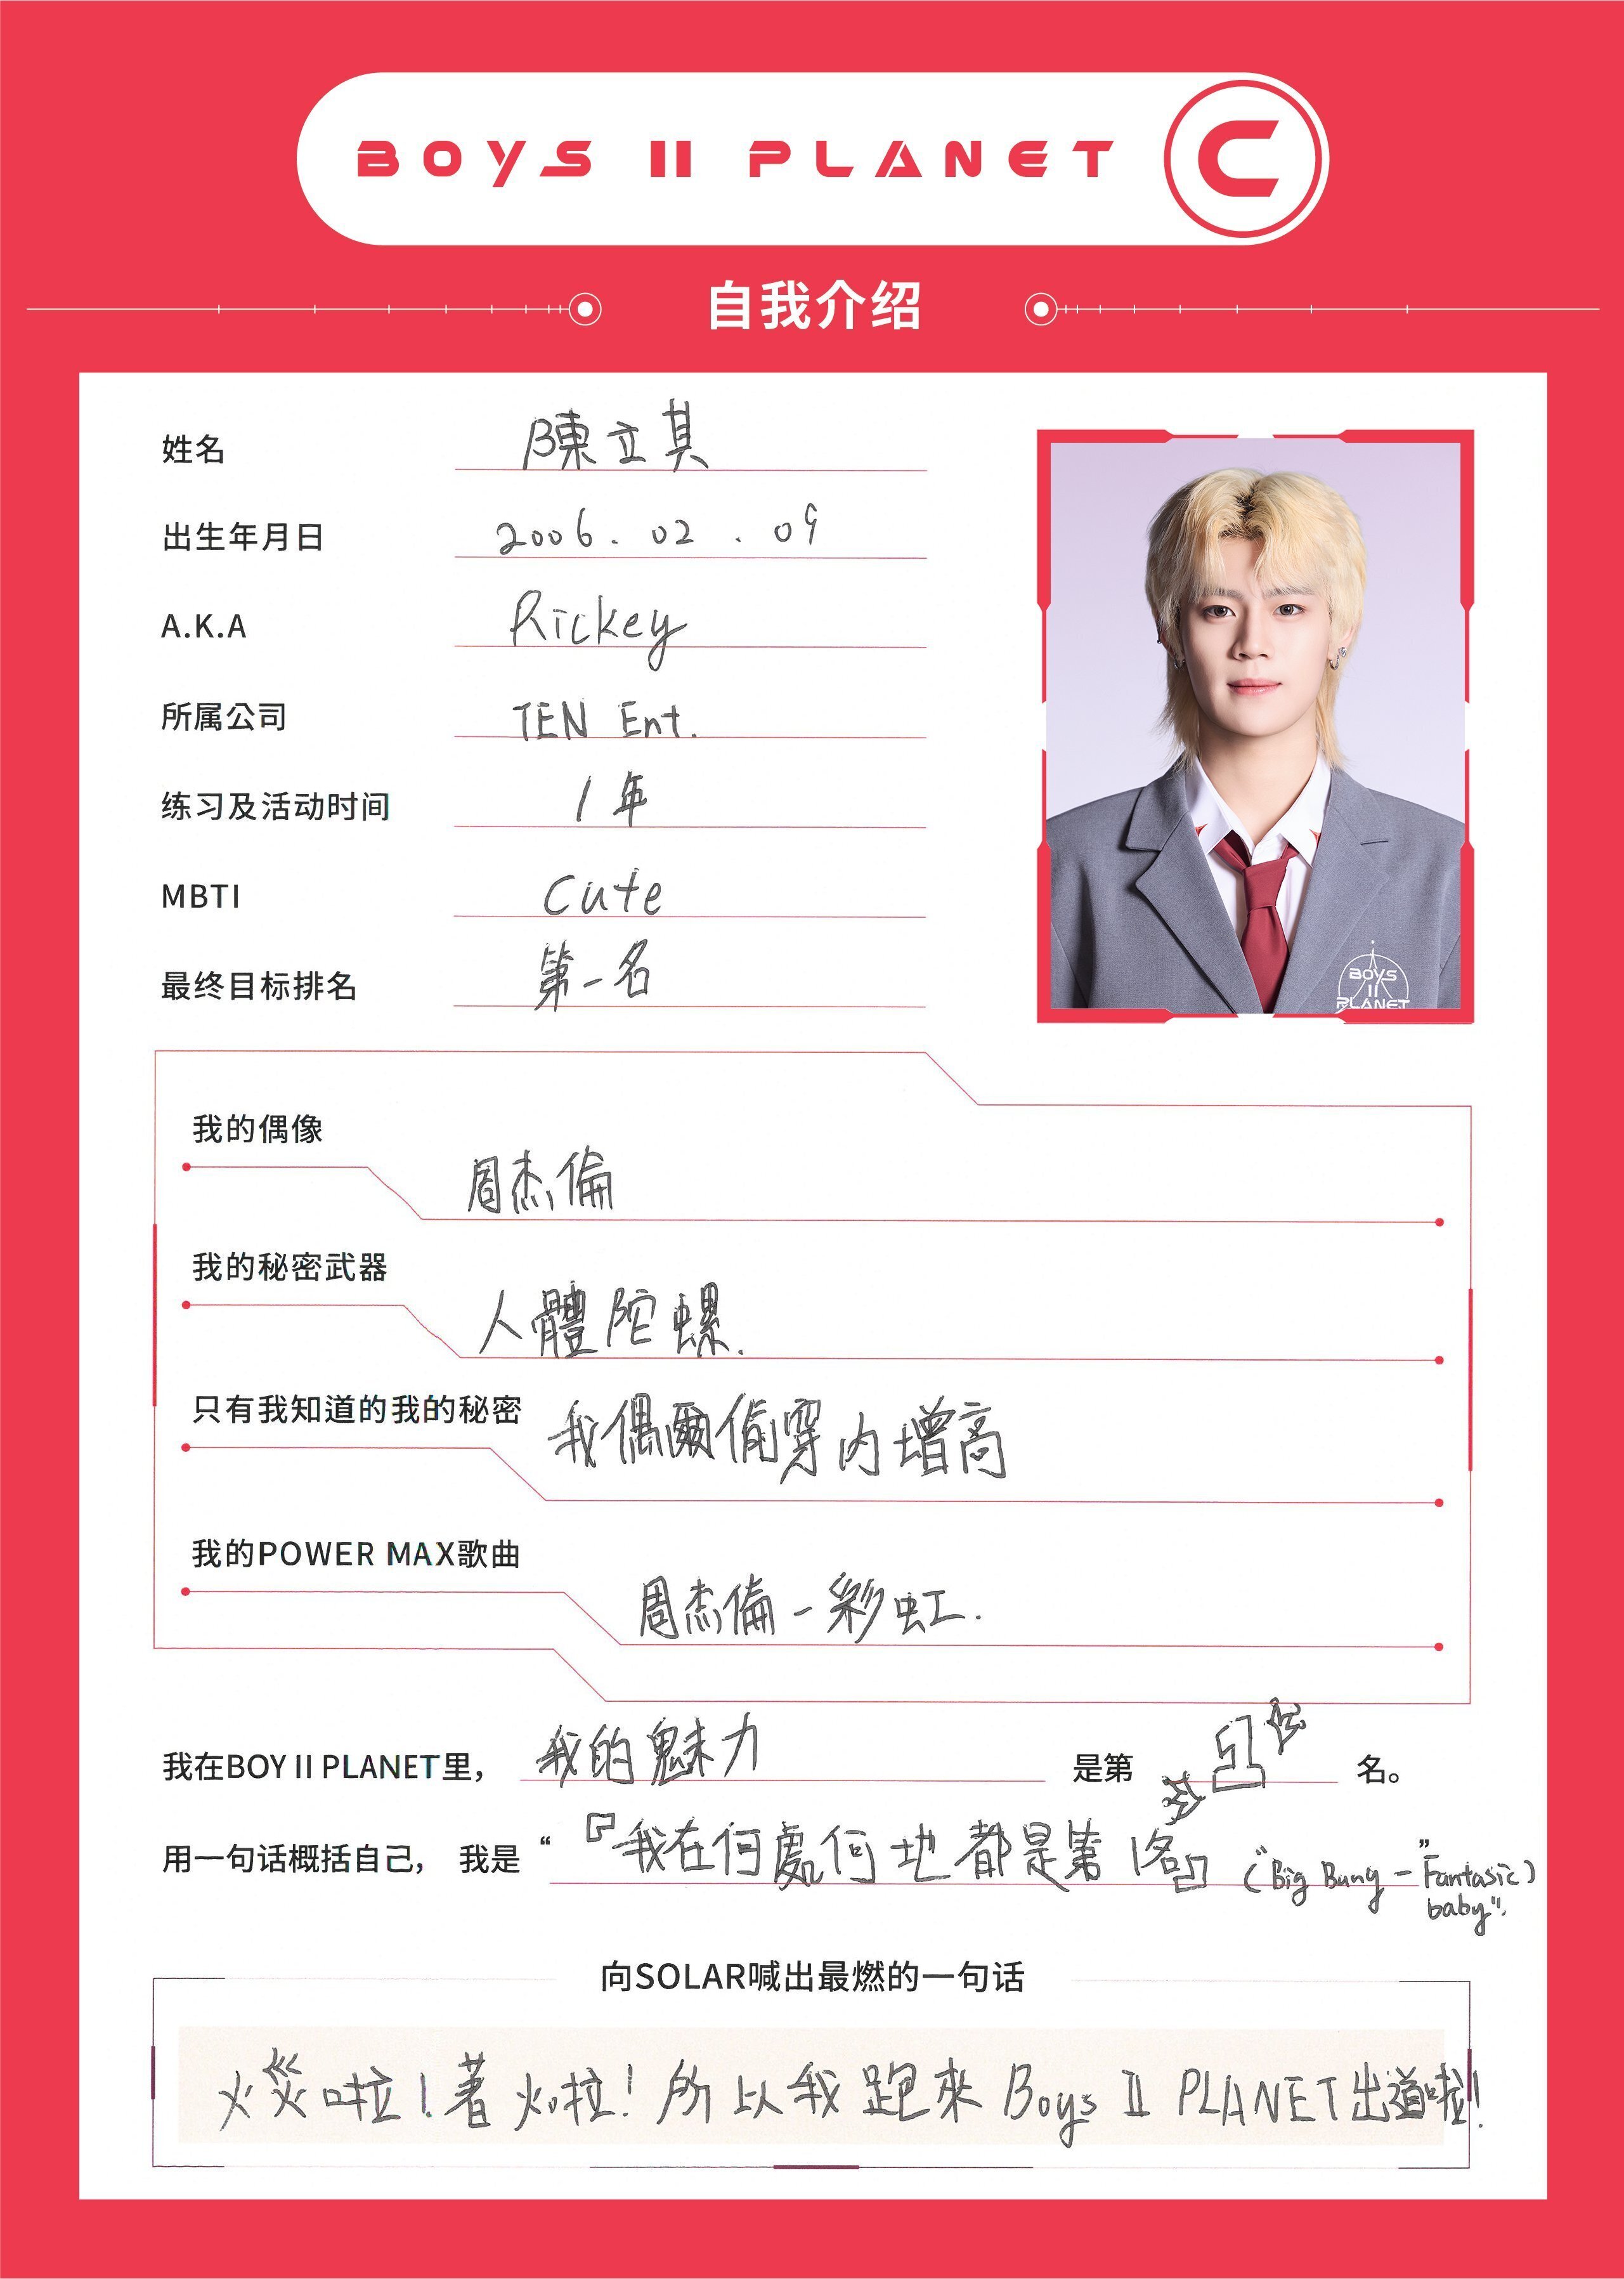 BOYS II PLANET C
自我介绍
姓名 陳立其
出生年月日 2006.02.09
A.K.A Rickey
所属公司 TEN Ent.
练习及活动时间 1年
MBTI Cute
最终目标排名 第一名
BOYS
II
PLANET
我的偶像
周杰倫
我的秘密武器
人體陀螺.
只有我知道的我的秘密 我偶爾偷穿內增高
我的POWER MAX歌曲
周杰倫-彩虹.
我在BOY II PLANET里， 我的魅力 是第 1 名。
用一句话概括自己， 我是 “『我在何處何地都是第1名』 ("Big Bang - Fantasic baby") ”
向SOLAR喊出最燃的一句话
火災啦!著火拉!所以我跑來Boys II PLANET出道啦!